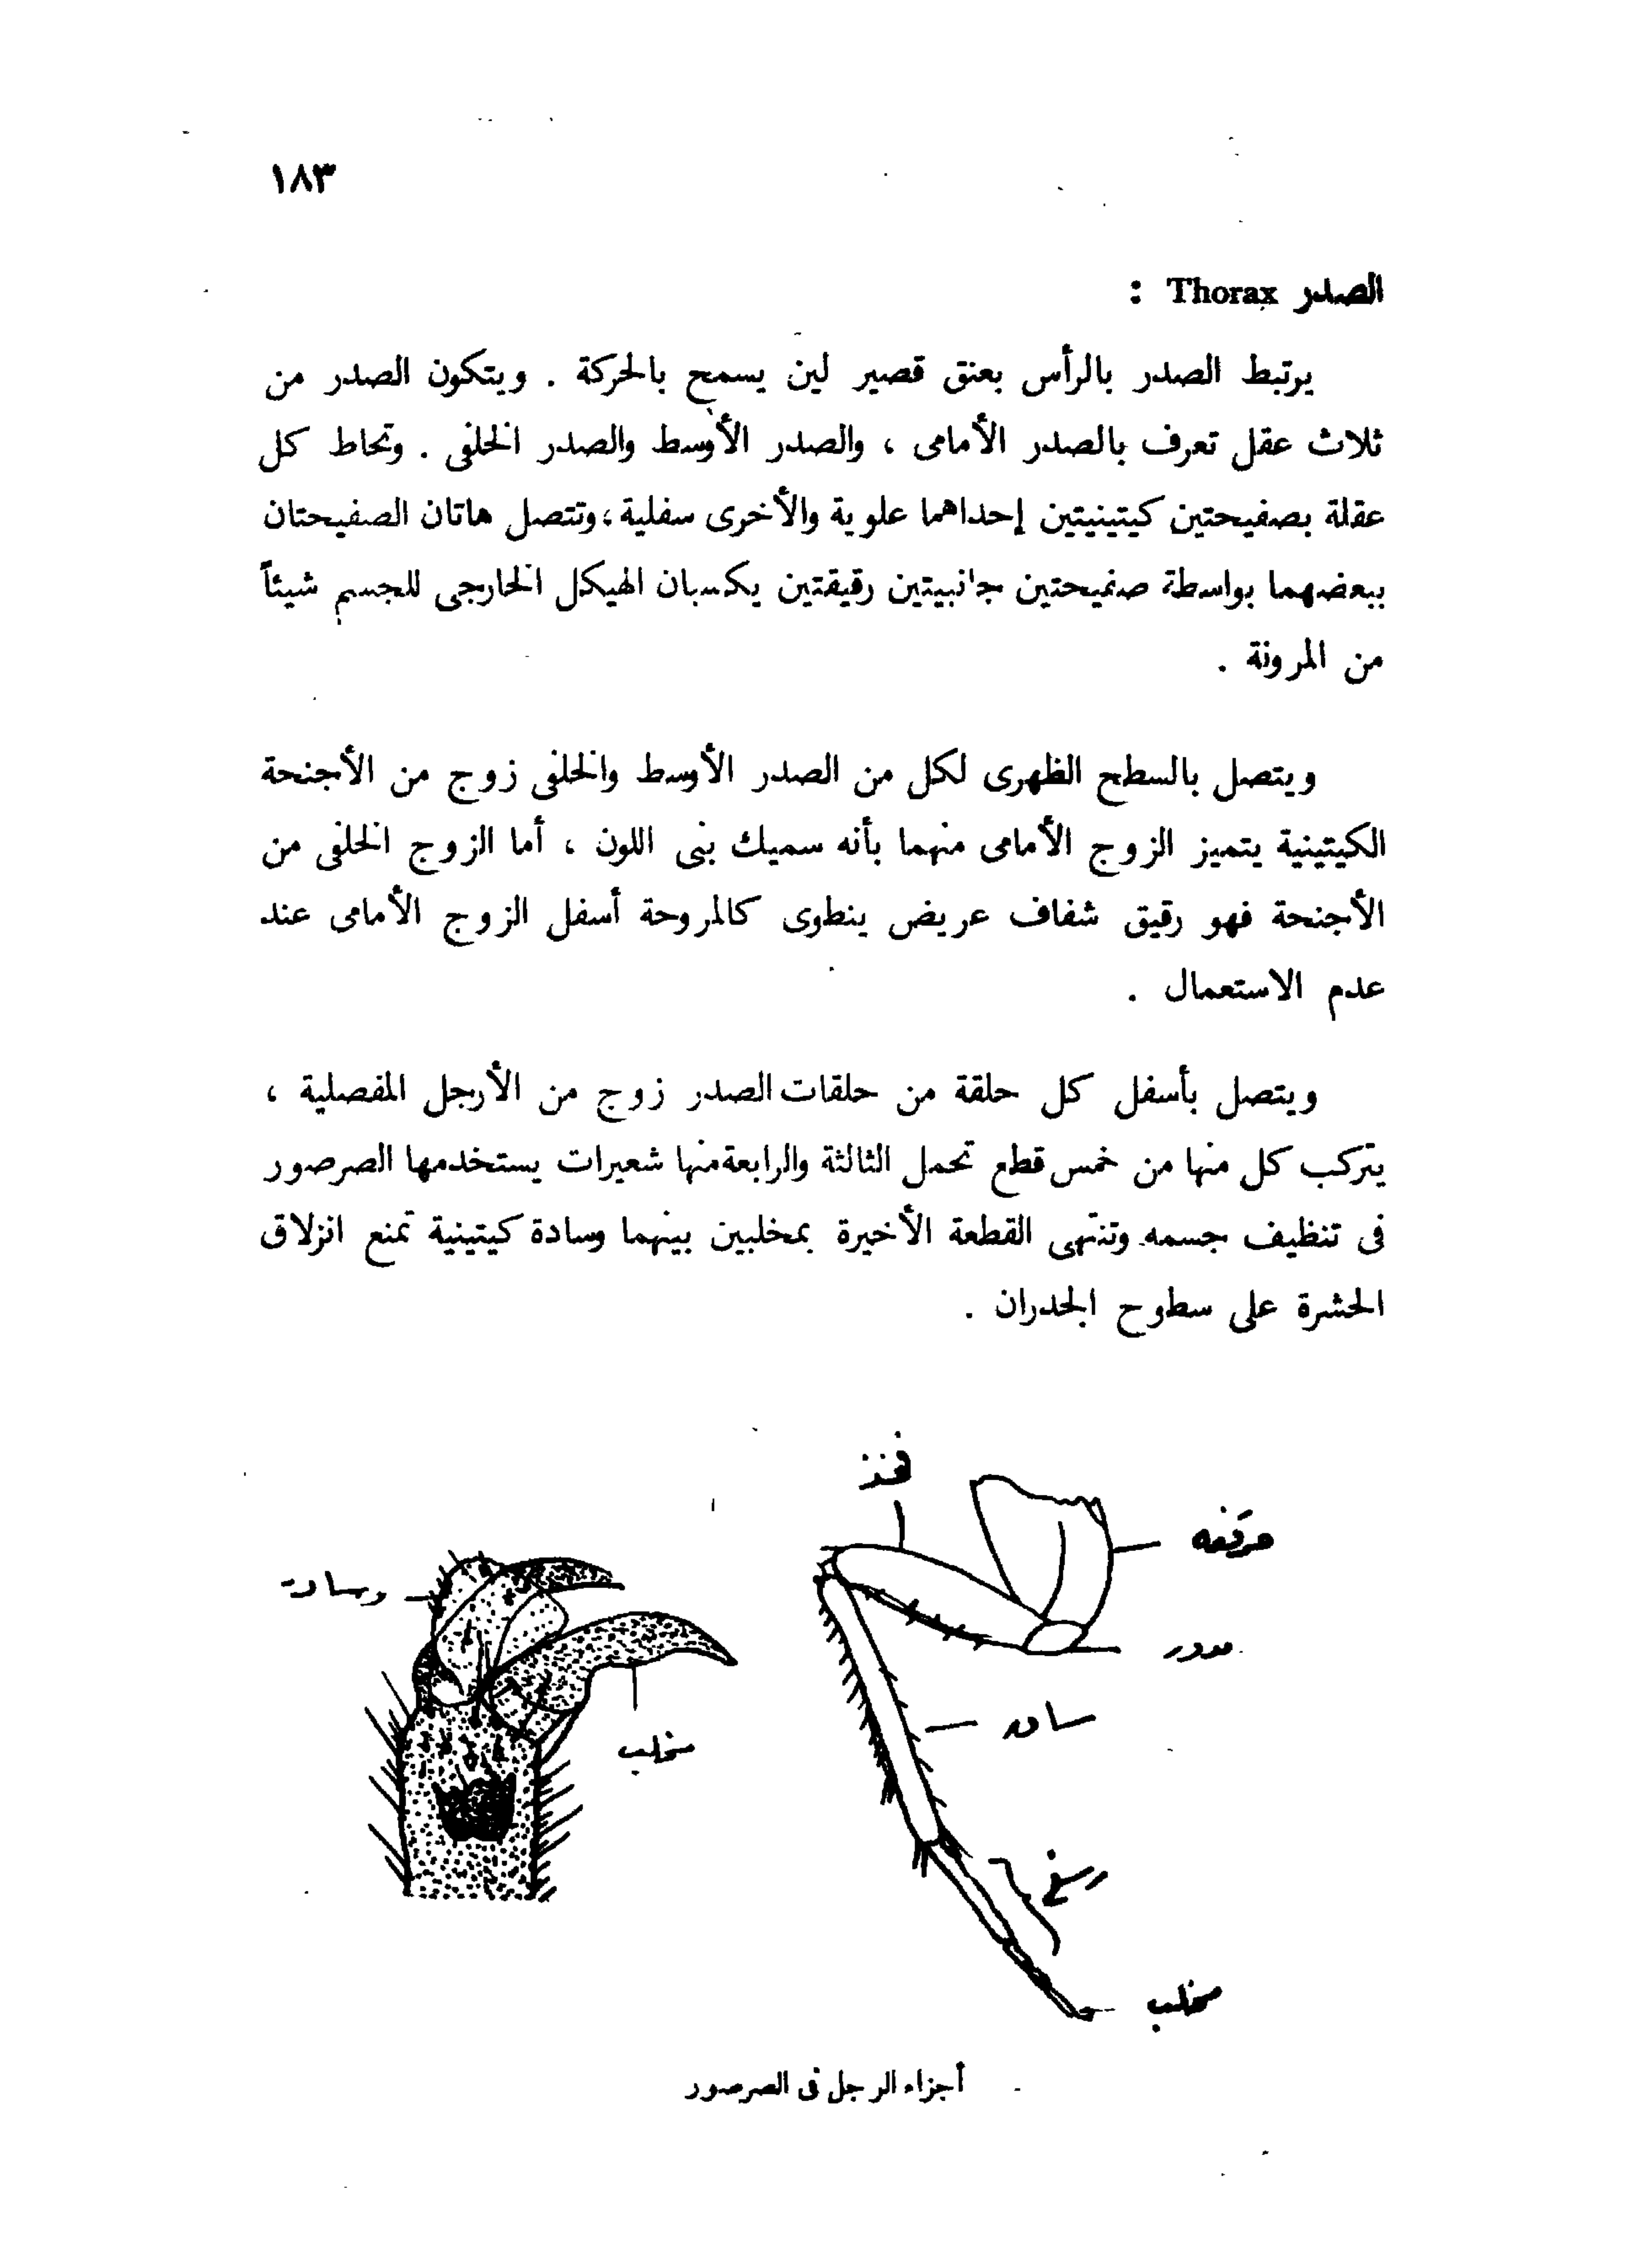 ١٨٣
الصدر Thorax :
يرتبط الصدر بالرأس بعنق قصير لين يسمح بالحركة . ويتكون الصدر من
ثلاث عقل تعرف بالصدر الأمامى ، والصدر الأوسط والصدر الخلفى . وتحاط كل
عقلة بصفيحتين كيتينيتين إحداهما علوية والأخرى سفلية ، وتتصل هاتان الصفيحتان
ببعضهما بواسطة صفيحتين جانبيتين رقيقتين يكسبان الهيكل الخارجى للجسم شيئاً
من المرونة .
ويتصل بالسطح الظهرى لكل من الصدر الأوسط والخلفى زوج من الأجنحة
الكيتينية يتميز الزوج الأمامى منهما بأنه سميك بنى اللون ، أما الزوج الخلفى من
الأجنحة فهو رقيق شفاف عريض ينطوى كالمروحة أسفل الزوج الأمامى عند
عدم الاستعمال .
ويتصل بأسفل كل حلقة من حلقات الصدر زوج من الأرجل المفصلية ،
يتركب كل منها من خمس قطع تحمل الثالثة والرابعة منها شعيرات يستخدمها الصرصور
فى تنظيف جسمه. وتنتهى القطعة الأخيرة بمخلبين بينهما وسادة كيتينية تمنع انزلاق
الحشرة على سطوح الجدران .
فخذ
حرقفه
وسادة
مدور
ساق
مخلب
رسغ
مخلب
أجزاء الرجل فى الصرصور